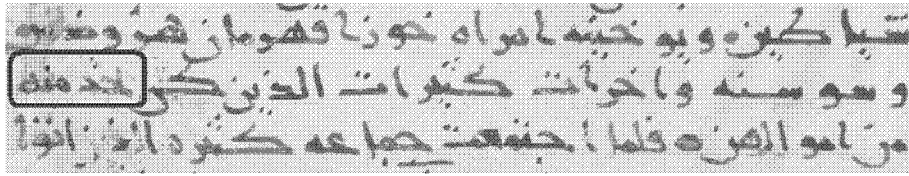 ويوحنه امراه خوزا قهرمان
وسوسنه واخرات كثيرات الذين كن يخدمنه
من اموالهن فلما اجتمعت جماعه كثيره